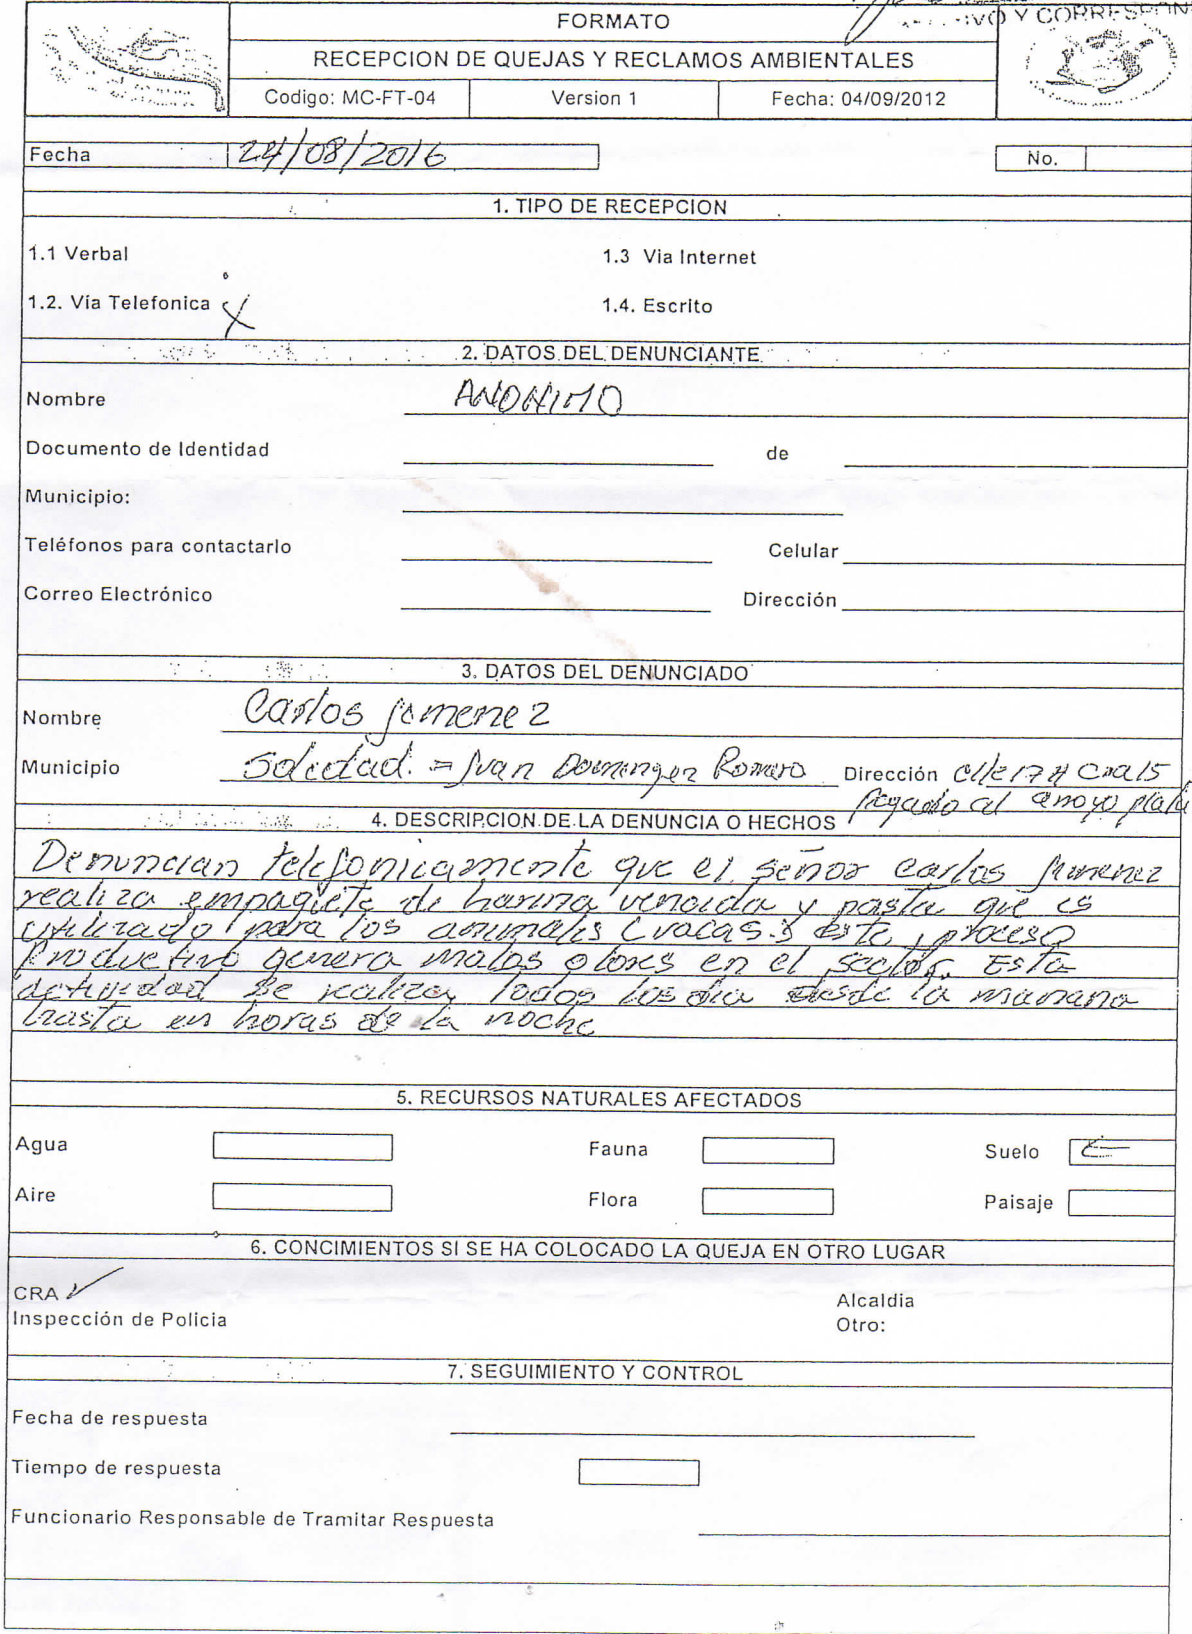 VO Y CORRESPON
FORMATO
RECEPCION DE QUEJAS Y RECLAMOS AMBIENTALES
Codigo: MC-FT-04 Version 1 Fecha: 04/09/2012
Fecha 24/08/2016 No.
1. TIPO DE RECEPCION
1.1 Verbal 1.3 Via Internet
1.2. Via Telefonica X 1.4. Escrito
2. DATOS DEL DENUNCIANTE
Nombre ANONIMO
Documento de Identidad de
Municipio:
Teléfonos para contactarlo Celular
Correo Electrónico Dirección
3. DATOS DEL DENUNCIADO
Nombre Carlos Jimenez
Municipio Soledad. = Juan Dominguez Romero Dirección Clle 17# Cra 15
Pegado al arroyo plata
4. DESCRIPCION DE LA DENUNCIA O HECHOS
Denuncian telefonicamente que el señor Carlos Jimenez
realiza empaquete de harina vencida y pasta que es
utilizado para los animales (vacas.) este proceso
Productivo genera malos olores en el sector. Esta
actividad se realiza todos los dia desde la manana
hasta en horas de la noche
5. RECURSOS NATURALES AFECTADOS
Agua Fauna Suelo
Aire Flora Paisaje
6. CONCIMIENTOS SI SE HA COLOCADO LA QUEJA EN OTRO LUGAR
CRA ✓ Alcaldia
Inspección de Policia Otro:
7. SEGUIMIENTO Y CONTROL
Fecha de respuesta
Tiempo de respuesta
Funcionario Responsable de Tramitar Respuesta